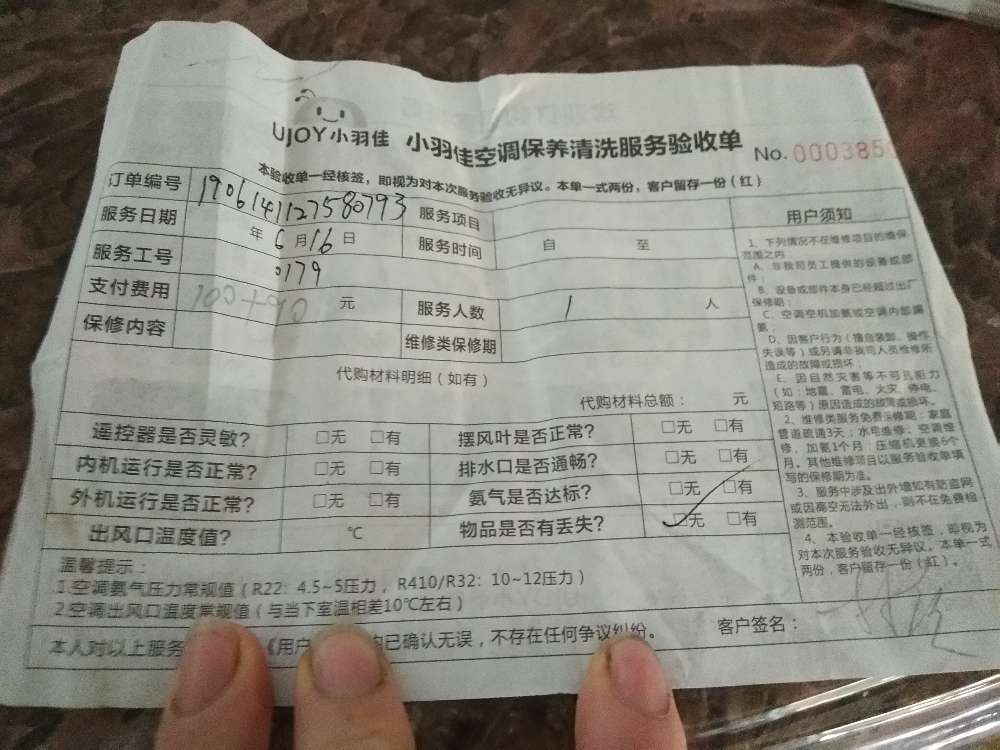 UJOY小羽佳 小羽佳空调保养清洗服务验收单
No. 0003850
本验收单一经核签，即视为对本次服务验收无异议。本单一式两份，客户留存一份（红）
订单编号 190614112758079​3 服务项目
服务日期 年 6 月 16 日 服务时间 自 至
服务工号 0179
支付费用 100+90 元 服务人数 1 人
保修内容 维修类保修期
代购材料明细（如有）
代购材料总额： 元
遥控器是否灵敏? □无 □有 摆风叶是否正常? □无 □有
内机运行是否正常? □无 □有 排水口是否通畅? □无 □有
外机运行是否正常? □无 □有 氨气是否达标? □无 □有
出风口温度值? ℃ 物品是否有丢失? □无 □有
温馨提示：
1.空调氨气压力常规值（R22：4.5~5压力，R410/R32：10~12压力）
2.空调出风口温度常规值（与当下室温相差10℃左右）
本人对以上服务 《用户 已确认无误，不存在任何争议纠纷。 客户签名：
用户须知
1、下列情况不在维修项目的维保
范围之内
A、非我司员工提供的设备或部
件；
B、设备或部件本身已经超过出厂
保修期；
C、空调空机加氨或空调内部漏
氨；
D、因客户行为（擅自装卸、操作
失误等）或另请非我司人员检修所
造成的故障或损坏；
E、因自然灾害等不可抗拒力
（如：地震、雷电、火灾、停电、
短路等）原因造成的故障或损坏。
2、维修类服务免费保修期：家庭
管道疏通3天；水电维修、空调维
修、加氨1个月；压缩机更换6个
月。其他维修项目以服务验收单填
写的保修期为准。
3、服务中涉及出外墙如有防盗网
或因高空无法外出，则不在免费检
测范围。
4、本验收单一经核签，即视为
对本次服务验收无异议。本单一式
两份，客户留存一份（红）。